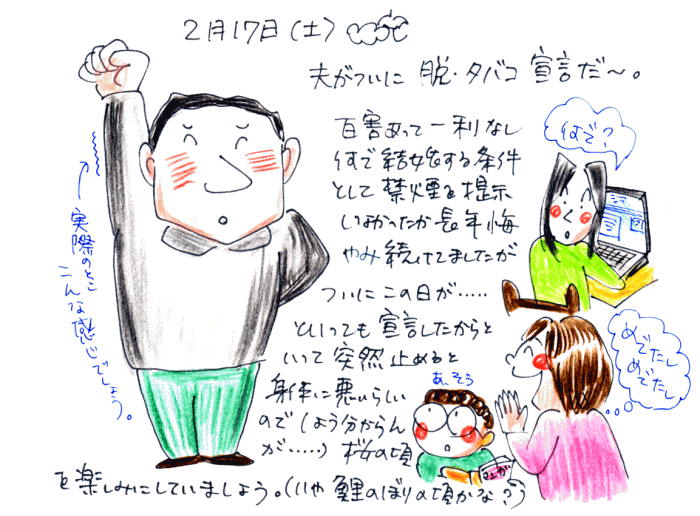 2月17日(土)
夫がついに 脱・タバコ 宣言だ〜。
百害あって一利なし
何で結婚する条件
として禁煙を提示
しなかったか長年悔
やみ続けてましたが
ついにこの日が……
といっても宣言したからと
いって突然止めると
身体に悪いらしい
ので(しょう分からん
が……)桜の頃
を楽しみにしていましょう。(いや鯉のぼりの頃かな?)
何で?
めでたし
めでたし
あ、そう
←実際のとこ
こんな感じでしょう。